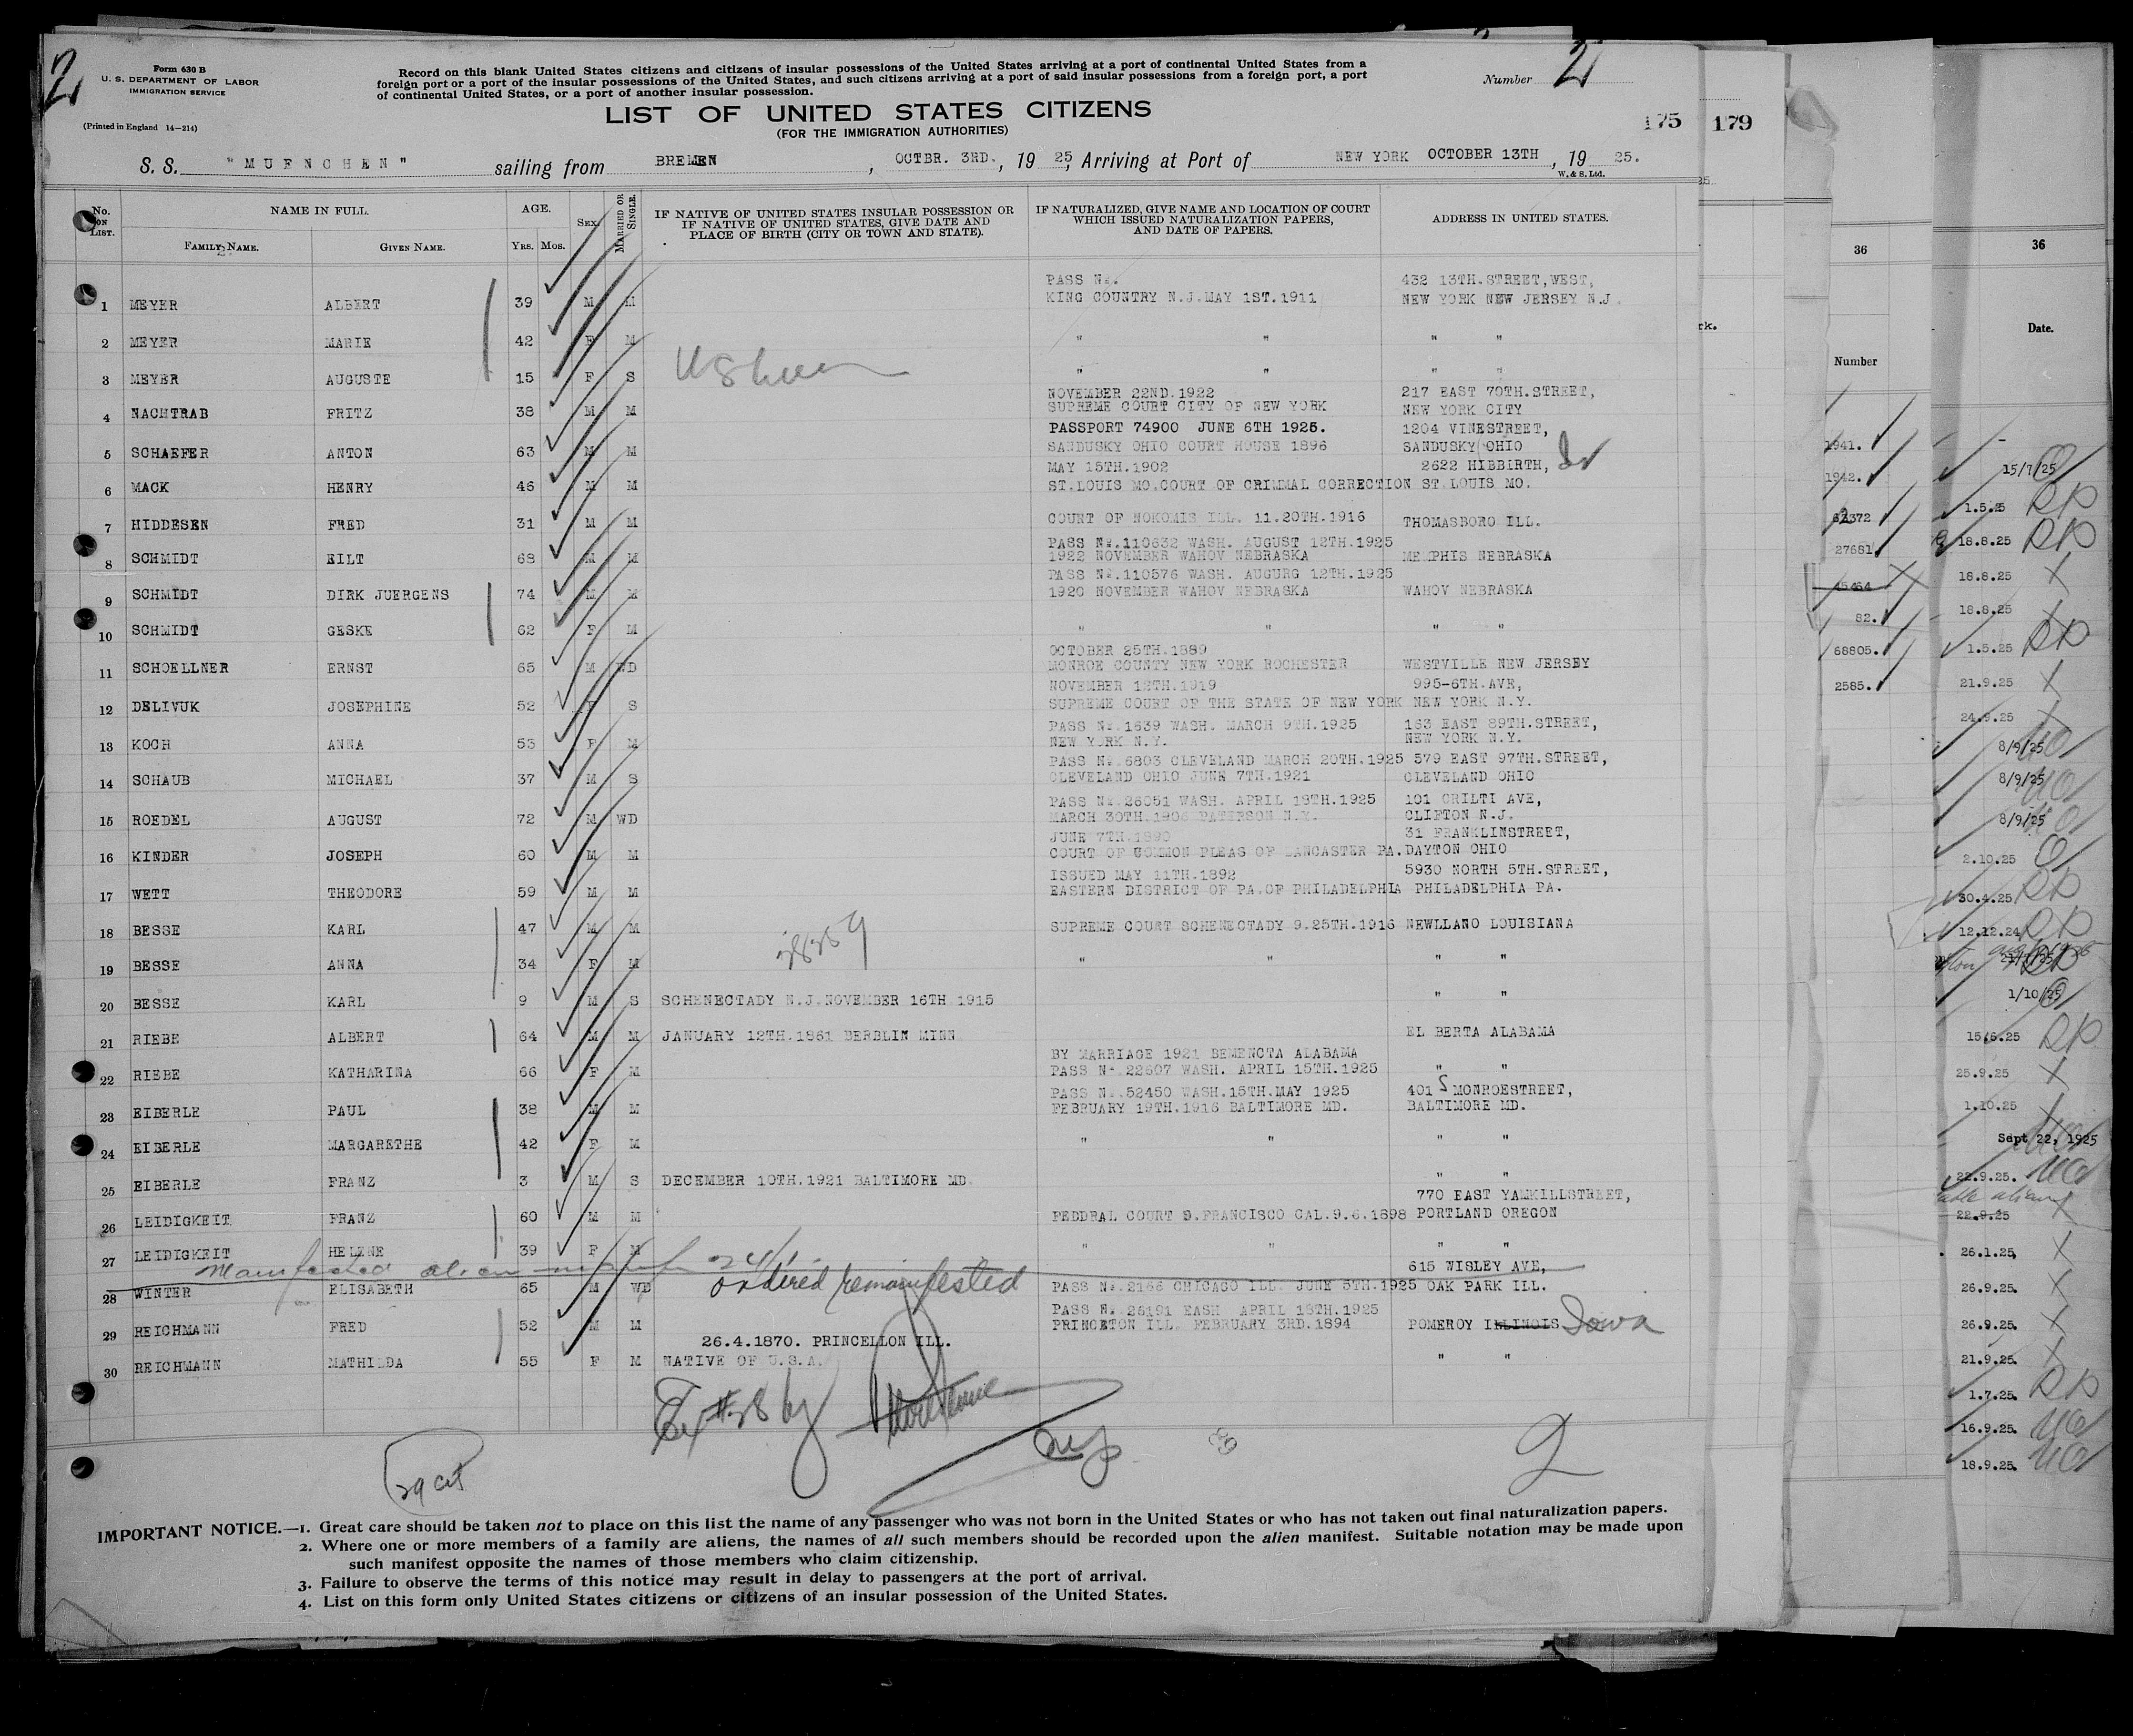 2
Form 630 B
U. S. DEPARTMENT OF LABOR
IMMIGRATION SERVICE
(Printed in England 14—214)
Record on this blank United States citizens and citizens of insular possessions of the United States arriving at a port of continental United States from a
foreign port or a port of the insular possessions of the United States, and such citizens arriving at a port of said insular possessions from a foreign port, a port
of continental United States, or a port of another insular possession.
Number 2
LIST OF UNITED STATES CITIZENS
(FOR THE IMMIGRATION AUTHORITIES)
175 179
S. S. "MUENCHEN" sailing from BREMEN, OCTBR. 3RD., 19 25, Arriving at Port of NEW YORK OCTOBER 13TH, 19 25.
W. & S. Ltd.
No. ON LIST. NAME IN FULL. AGE. SEX. MARRIED OR SINGLE. IF NATIVE OF UNITED STATES INSULAR POSSESSION OR IF NATIVE OF UNITED STATES, GIVE DATE AND PLACE OF BIRTH (CITY OR TOWN AND STATE). IF NATURALIZED, GIVE NAME AND LOCATION OF COURT WHICH ISSUED NATURALIZATION PAPERS, AND DATE OF PAPERS. ADDRESS IN UNITED STATES.
FAMILY NAME. GIVEN NAME. YRS. MOS.
PASS No. 432 13TH.STREET,WEST,
1 MEYER ALBERT 39 M M KING COUNTRY N.J.MAY 1ST.1911 NEW YORK NEW JERSEY N.J.
2 MEYER MARIE 42 F M " " " "
3 MEYER AUGUSTE 15 F S " " " "
NOVEMBER 22ND.1922 217 EAST 70TH.STREET,
4 NACHTRAB FRITZ 38 M M SUPREME COURT CITY OF NEW YORK NEW YORK CITY
PASSPORT 74900 JUNE 6TH 1925. 1204 VINESTREET,
5 SCHAEFER ANTON 63 M M SANDUSKY OHIO COURT HOUSE 1896 SANDUSKY OHIO
MAY 15TH.1902 2622 HIBBIRTH,
6 MACK HENRY 46 M M ST.LOUIS MO.COURT OF CRIMMAL CORRECTION ST.LOUIS MO.
7 HIDDESEN FRED 31 M M COURT OF NOKOMIS ILL. 11.20TH.1916 THOMASBORO ILL.
PASS No.110632 WASH. AUGUST 12TH.1925
8 SCHMIDT EILT 68 M M 1922 NOVEMBER WAHOV NEBRASKA MEMPHIS NEBRASKA
PASS No.110576 WASH. AUGURG 12TH.1925
9 SCHMIDT DIRK JUERGENS 74 M M 1920 NOVEMBER WAHOV NEBRASKA WAHOV NEBRASKA
10 SCHMIDT GESKE 62 F M " " " "
OCTOBER 25TH.1889
11 SCHOELLNER ERNST 65 M WD MONROE COUNTY NEW YORK ROCHESTER WESTVILLE NEW JERSEY
NOVEMBER 12TH.1919 995-6TH.AVE,
12 DELIVUK JOSEPHINE 52 F S SUPREME COURT OF THE STATE OF NEW YORK NEW YORK N.Y.
PASS No.1639 WASH. MARCH 9TH.1925 163 EAST 89TH.STREET,
13 KOCH ANNA 53 F M NEW YORK N.Y. NEW YORK N.Y.
PASS No.6803 CLEVELAND MARCH 20TH.1925 579 EAST 97TH.STREET,
14 SCHAUB MICHAEL 37 M S CLEVELAND OHIO JUNE 7TH.1921 CLEVELAND OHIO
PASS No.26051 WASH. APRIL 18TH.1925 101 GRILTI AVE,
15 ROEDEL AUGUST 72 M WD MARCH 30TH.1906 PATERSON N.Y. CLIFTON N.J.
JUNE 7TH.1890 31 FRANKLINSTREET,
16 KINDER JOSEPH 60 M M COURT OF COMMON PLEAS OF LANCASTER PA. DAYTON OHIO
ISSUED MAY 11TH.1892 5930 NORTH 5TH.STREET,
17 WETT THEODORE 59 M M EASTERN DISTRICT OF PA.OF PHILADELPHIA PHILADELPHIA PA.
18 BESSE KARL 47 M M SUPREME COURT SCHENECTADY 9.25TH.1916 NEWLLANO LOUISIANA
19 BESSE ANNA 34 F M " " " "
20 BESSE KARL 9 M S SCHENECTADY N.J.NOVEMBER 16TH 1915 " "
21 RIEBE ALBERT 64 M M JANUARY 12TH.1861 BERBLIN MINN EL BERTA ALABAMA
BY MARRIAGE 1921 BEMENCTA ALABAMA
22 RIEBE KATHARINA 66 F M PASS No 22607 WASH. APRIL 15TH.1925 " "
PASS No.52450 WASH.15TH.MAY 1925 401 S MONROESTREET,
23 EIBERLE PAUL 38 M M FEBRUARY 19TH.1916 BALTIMORE MD. BALTIMORE MD.
24 EIBERLE MARGARETHE 42 F M " " " "
25 EIBERLE FRANZ 3 M S DECEMBER 10TH.1921 BALTIMORE MD. " "
770 EAST YAMKILLSTREET,
26 LEIDIGKEIT FRANZ 60 M M FEDDRAL COURT S.FRANCISCO CAL.9.6.1898 PORTLAND OREGON
27 LEIDIGKEIT HELENE 39 F M " " " "
Manifested alien 615 WISLEY AVE,
28 WINTER ELISABETH 65 M WD ordered remanifested PASS No.2166 CHICAGO ILL. JUNE 5TH.1925 OAK PARK ILL.
PASS No.26191 EASH APRIL 18TH.1925
29 REICHMANN FRED 52 M M PRINCETON ILL. FEBRUARY 3RD.1894 POMEROY ILLINOIS Iowa
26.4.1870. PRINCELLON ILL.
30 REICHMANN MATHILDA 55 F M NATIVE OF U.S.A. " "
Ex #28 by
29 cit
2
IMPORTANT NOTICE.—1. Great care should be taken not to place on this list the name of any passenger who was not born in the United States or who has not taken out final naturalization papers.
2. Where one or more members of a family are aliens, the names of all such members should be recorded upon the alien manifest. Suitable notation may be made upon
such manifest opposite the names of those members who claim citizenship.
3. Failure to observe the terms of this notice may result in delay to passengers at the port of arrival.
4. List on this form only United States citizens or citizens of an insular possession of the United States.
rk.
36
Number
1941.
1942.
27681
45464
82.
68805.
2585.
36
Date.
15/7/25
1.5.25
18.8.25
18.8.25
18.8.25
1.5.25
21.9.25
24.9.25
8/9/25
8/9/25
8/9/25
2.10.25
30.4.25
12.12.24
1/10/25
15/6.25
25.9.25
1.10.25
Sept 22, 1925
22.9.25.
22.9.25
26.1.25
26.9.25
26.9.25
21.9.25
1.7.25
16.9.25
18.9.25